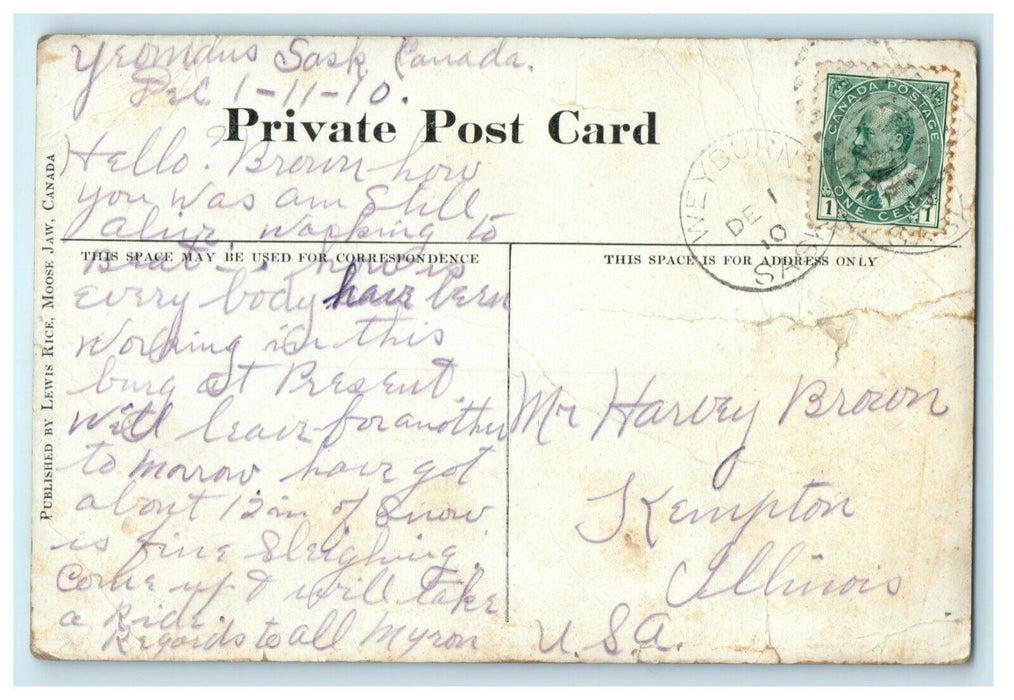 Yeomans Sask Canada.
Dec 1-11-10.
Private Post Card
Hello? Brown how
you was am Still
alive. Working to
Beat - how is
every body have been
Working in this
burg at Present.
Will leave for another
to morrow. have got
about 12 in of Snow
is fine Sleighing.
Come up & I will take
a Ride
Regards to all Myron
THIS SPACE MAY BE USED FOR CORRESPONDENCE
PUBLISHED BY LEWIS RICE, MOOSE JAW, CANADA
THIS SPACE IS FOR ADDRESS ONLY
CANADA POSTAGE
1 ONE CENT 1
WEYBURN
DE 1
10
SASK
Mr Harvey Brown
Kempton
Illinois
U.S.A.